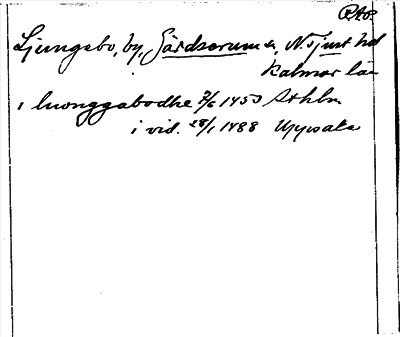 RAp.
Ljungsbo, by, Gärdserums sn, N. Tjust hd
Kalmar län
i liwonggabodhe 7/6 1453 Sthlm
i vid. 28/1 1488 Uppsala